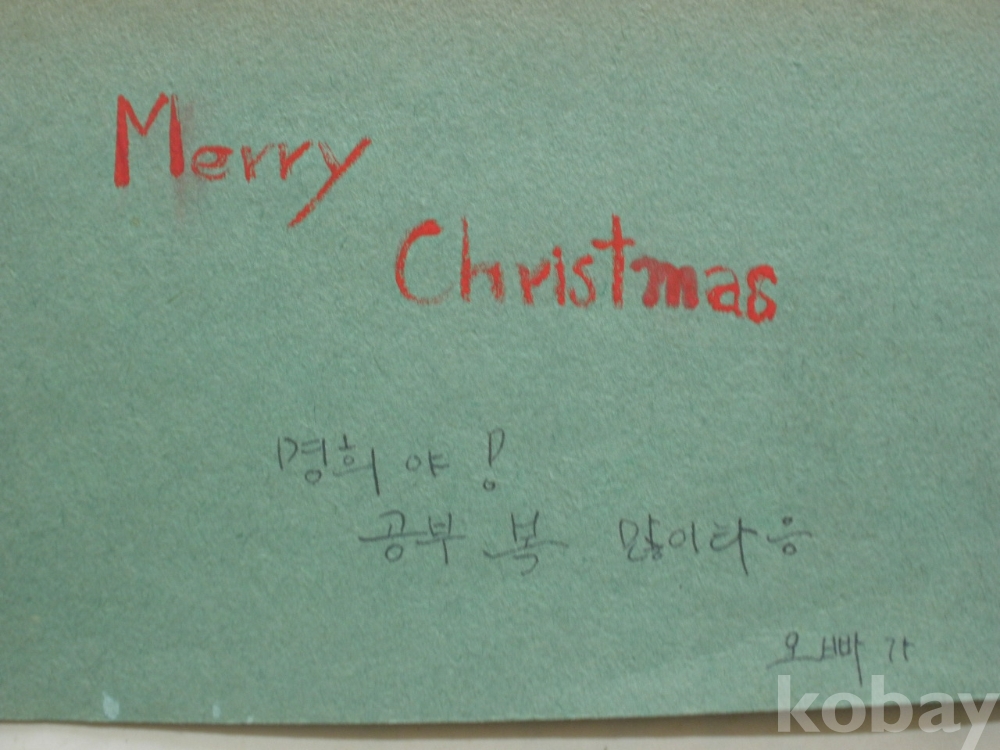 Merry
Christmas
명희야!
공부 복 많이타응
오빠가
kobay